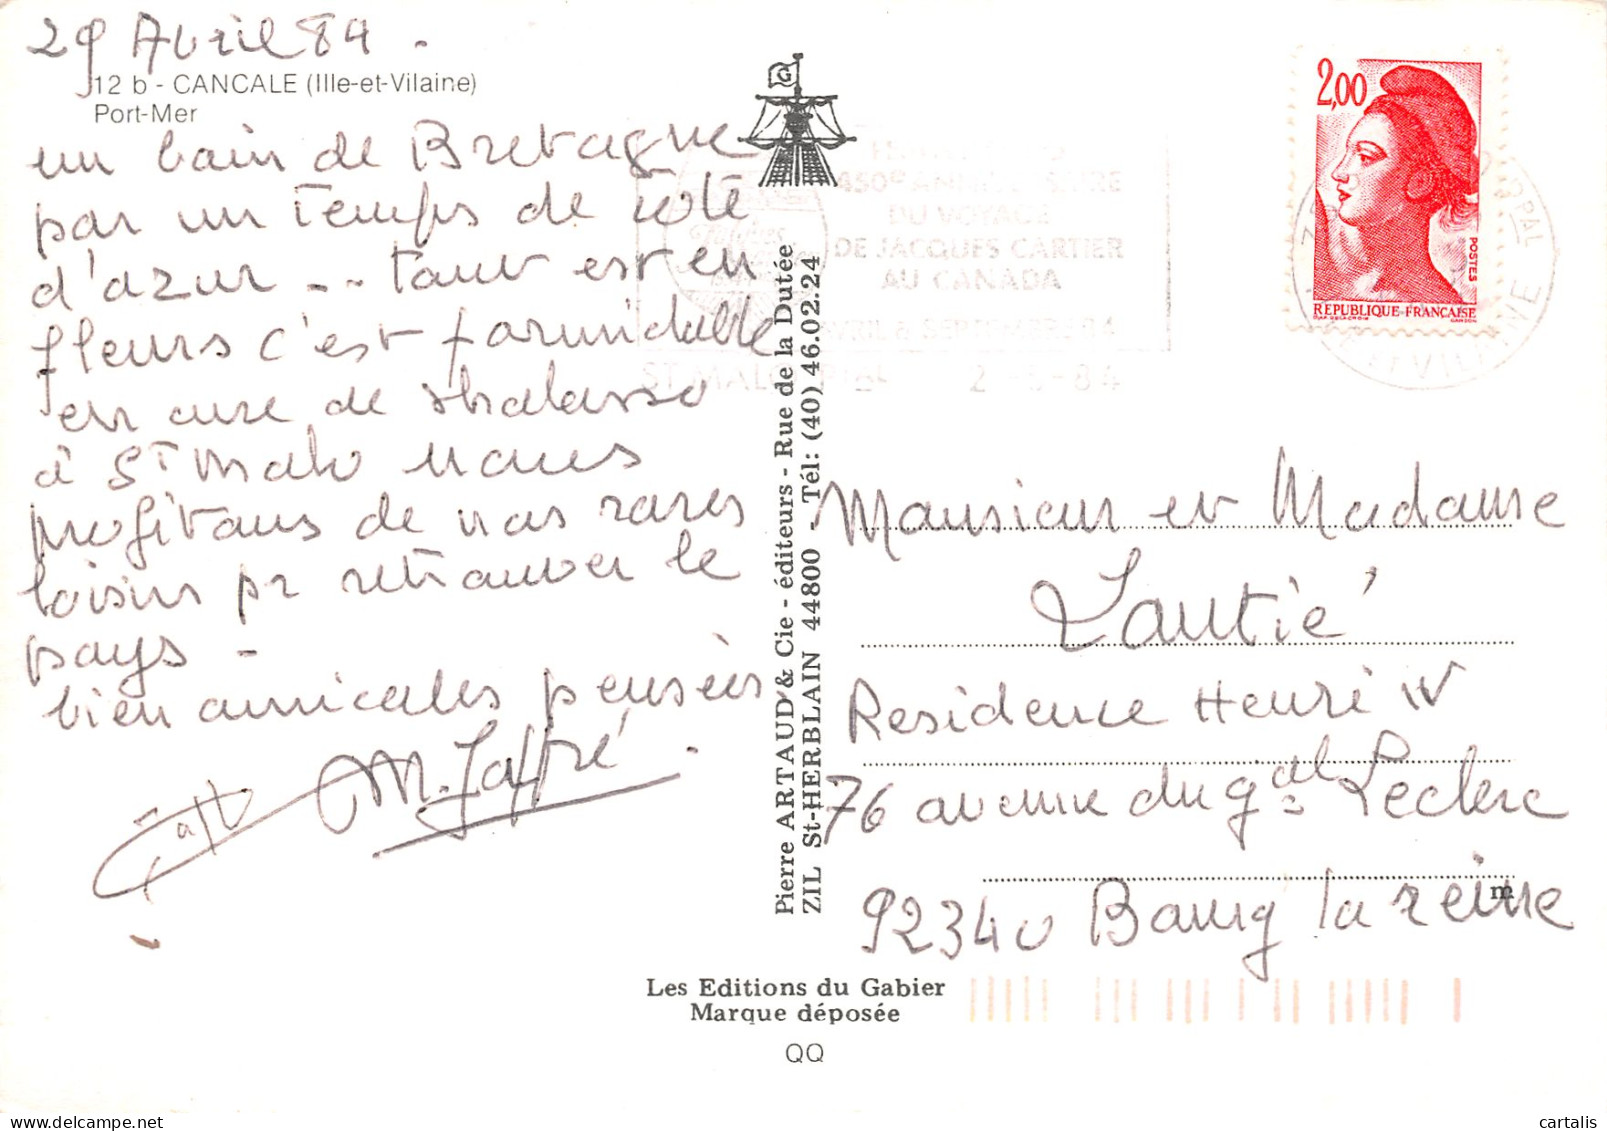 29 Avril 84.
12 b - CANCALE (Ille-et-Vilaine)
Port-Mer
un bain de Bretagne
par un temps de côte
d'azur -.. tout est en
fleurs c'est formidable
en cure de thalasso
à St Malo nous
profitons de nos rares
loisirs pr retrouver le
pays -
bien amicales pensées
M. Jaffré
450e ANNIVERSAIRE
DU VOYAGE
DE JACQUES CARTIER
AU CANADA
AVRIL à SEPTEMBRE 84
ST MALO
2 -5-84
2,00
POSTES
REPUBLIQUE-FRANÇAISE
Pierre ARTAUD & Cie - éditeurs - Rue de la Dutée
ZIL St-HERBLAIN 44800 - Tél: (40) 46.02.24
Monsieur et Madame
Lautié
Residence Henri IV
76 avenue du gal Leclerc
92340 Bourg la reine
m
Les Editions du Gabier
Marque déposée
QQ
cartalis